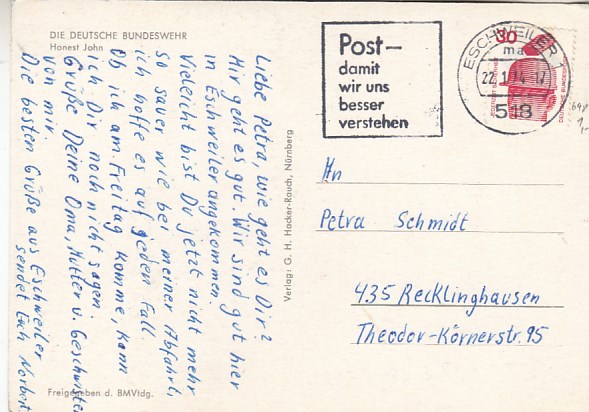 DIE DEUTSCHE BUNDESWEHR
Honest John
Liebe Petra, wie geht es Dir?
Mir geht es gut. Wir sind gut hier
in Eschweiler angekommen.
Vieleicht bist Du jetzt nicht mehr
so sauer wie bei meiner Abfahrt,
ich hoffe es auf jeden Fall.
Ob ich am Freitag komme, kann
ich Dir noch nicht sagen.
Grüße Deine Oma, Mutter u. Geschwister
von mir.
Die besten Grüße aus Eschweiler
sendet Euch Norbert
Freigegeben d. BMVtdg.
Verlag: G. H. Hacker-Rauch, Nürnberg
Post-
damit
wir uns
besser
verstehen
ESCHWEILER 1
ma
22.1.74-17
518
30
DEUTSCHE BUNDESPOST
An
Petra Schmidt
435 Recklinghausen
Theodor-Körnerstr. 95